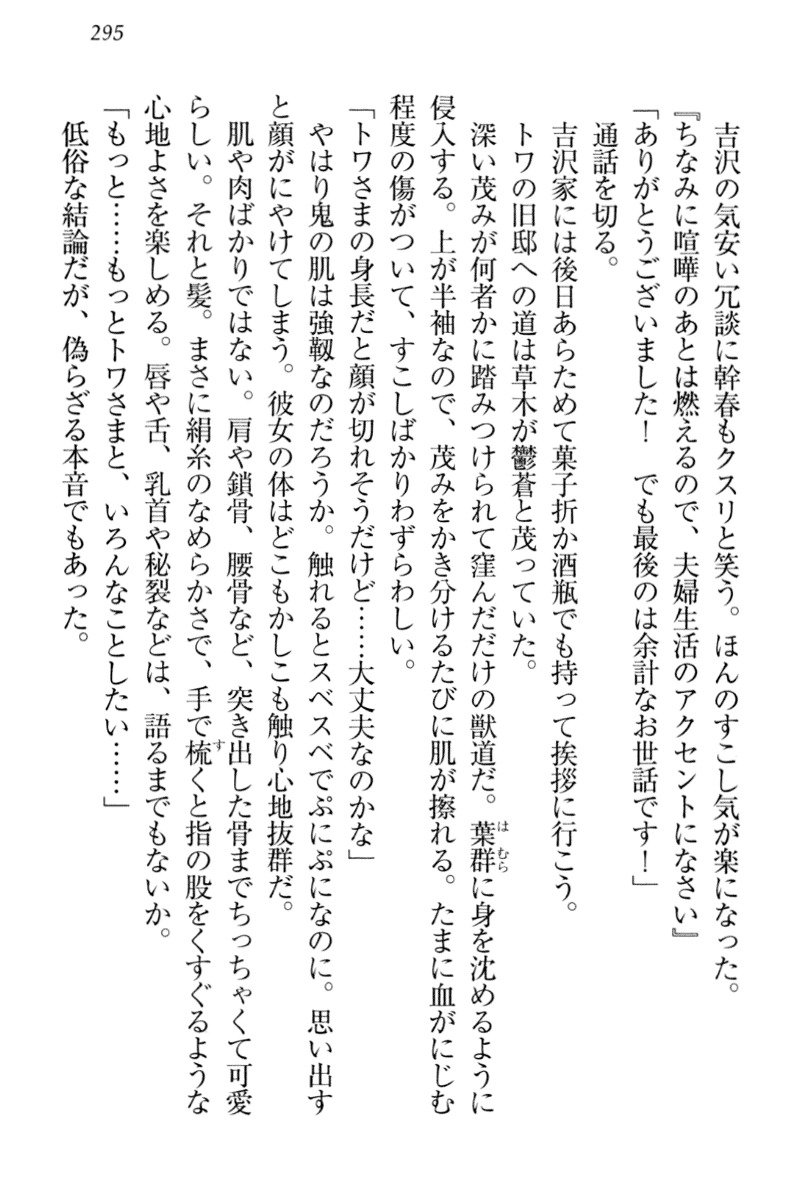 295
吉沢の気安い冗談に幹春もクスリと笑う。ほんのすこし気が楽になった。
『ちなみに喧嘩のあとは燃えるので、夫婦生活のアクセントになさい』
「ありがとうございました！　でも最後のは余計なお世話です！」
通話を切る。
吉沢家には後日あらためて菓子折か酒瓶でも持って挨拶に行こう。
トワの旧邸への道は草木が鬱蒼と茂っていた。
深い茂みが何者かに踏みつけられて窪んだだけの獣道だ。葉群に身を沈めるように
侵入する。上が半袖なので、茂みをかき分けるたびに肌が擦れる。たまに血がにじむ
程度の傷がついて、すこしばかりわずらわしい。
「トワさまの身長だと顔が切れそうだけど……大丈夫なのかな」
やはり鬼の肌は強靱なのだろうか。触れるとスベスベでぷにぷになのに。思い出す
と顔がにやけてしまう。彼女の体はどこもかしこも触り心地抜群だ。
肌や肉ばかりではない。肩や鎖骨、腰骨など、突き出した骨までちっちゃくて可愛
らしい。それと髪。まさに絹糸のなめらかさで、手で梳くと指の股をくすぐるような
心地よさを楽しめる。唇や舌、乳首や秘裂などは、語るまでもないか。
「もっと……もっとトワさまと、いろんなことしたい……」
低俗な結論だが、偽らざる本音でもあった。